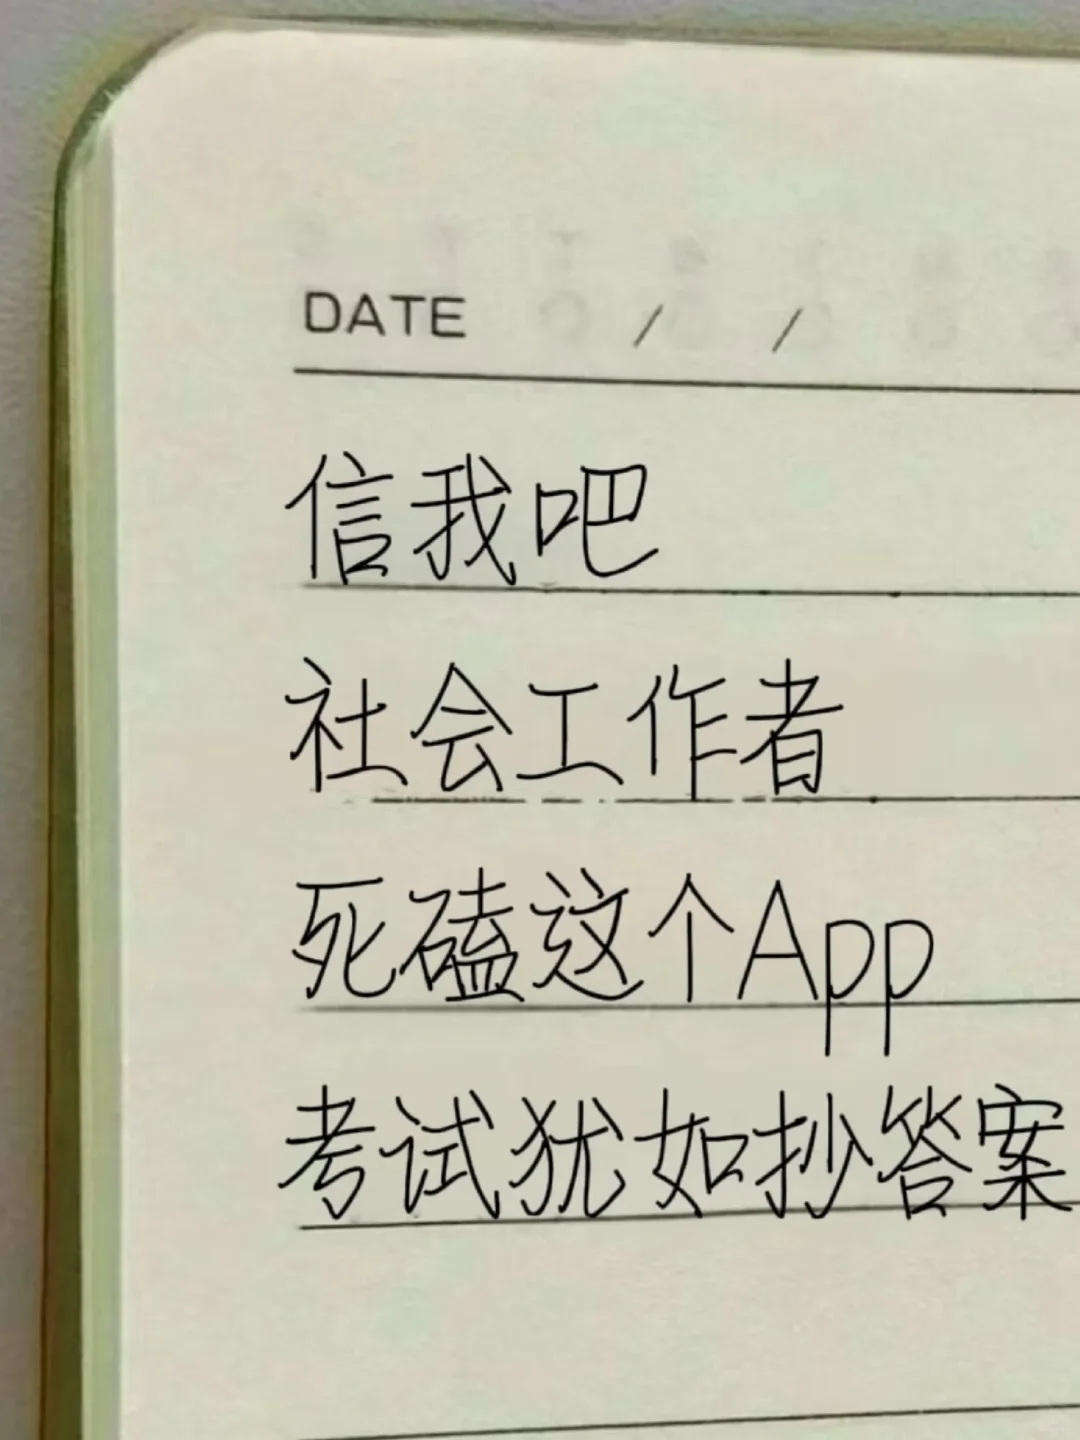 DATE / /
信我吧
社会工作者
死磕这个App
考试犹如抄答案